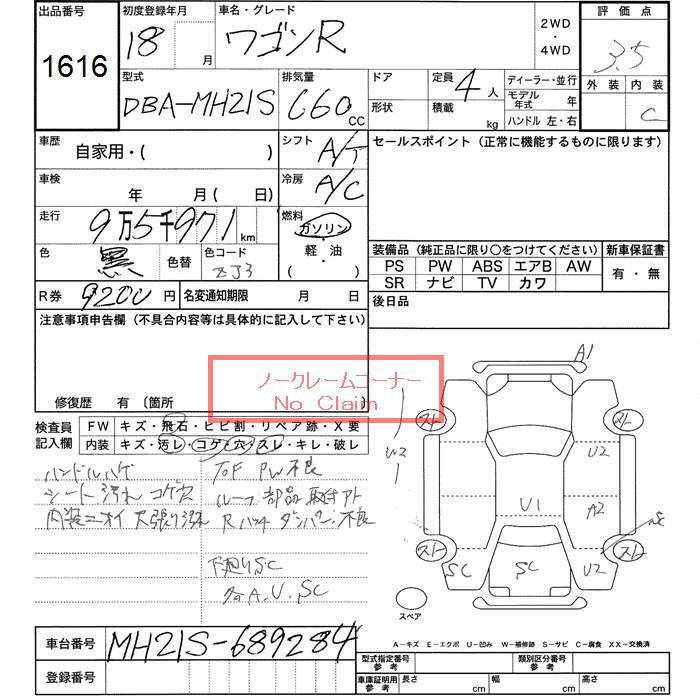 出品番号 初度登録年月 車名・グレード 2WD ・ 4WD 評価点
1616 18 月 ワゴンR 3.5
型式 排気量 ドア 定員 4 人 ディーラー・並行 外装 内装
DBA-MH21S 660 cc 形状 積載 kg モデル年式 年 C
ハンドル 左・右
車歴 自家用・( ) シフト A/T セールスポイント (正常に機能するものに限ります)
車検 年 月 ( 日) 冷房 A/C
走行 9万5千971 km 燃料 ガソリン
色 黒 色替 色コード ZJ3 ・軽・油 ( ) 装備品 (純正品に限り○をつけてください) 新車保証書
PS PW ABS エアB AW 有・無
SR ナビ TV カワ
R券 9200 円 名変通知期限 月 日 後日品
注意事項申告欄 (不具合内容等は具体的に記入して下さい)
ノークレームコーナー
No Claim
修復歴 有 (箇所
検査員記入欄 FW キズ・飛石・ヒビ割・リペア跡・X要
内装 キズ・汚レ・コゲ・穴・スレ・キレ・破レ
ハンドルハゲ
シート汚れ コゲ穴
内装ニオイ 天張り汚れ
PW不良
ルーフ部品取付アト
Rハッチダンパー不良
下廻りSC
各A.U.SC
A1
スト スト
U2 U2
U1 A2
スト スト
SC SC U2
スペア
車台番号 MH21S-689284
A-キズ E-エクボ U-凹み W-補修跡 S-サビ C-腐食 XX-交換済
登録番号 型式指定番号 参考 類別区分番号 参考
車庫証明用 参考 長さ cm 幅 cm 高さ cm